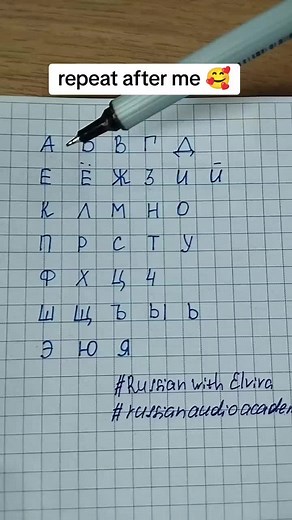 repeat after me 🥰
А Б В Г Д
Е Ё Ж З И Й
К Л М Н О
П Р С Т У
Ф Х Ц Ч
Ш Щ Ъ Ы Ь
Э Ю Я
#Russian with Elvira
#russianaudioacadem